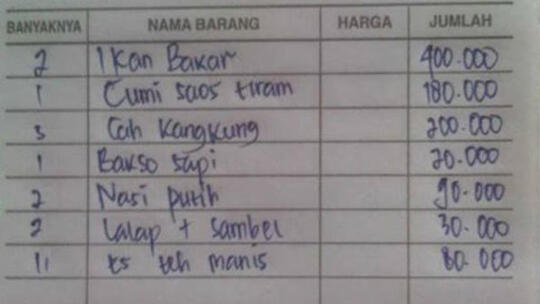 BANYAKNYA NAMA BARANG HARGA JUMLAH
2 Ikan Bakar 400.000
1 Cumi saos tiram 180.000
3 Cah Kangkung 200.000
1 Bakso sapi 20.000
2 Nasi putih 90.000
2 Lalap + sambel 30.000
11 Es teh manis 80.000